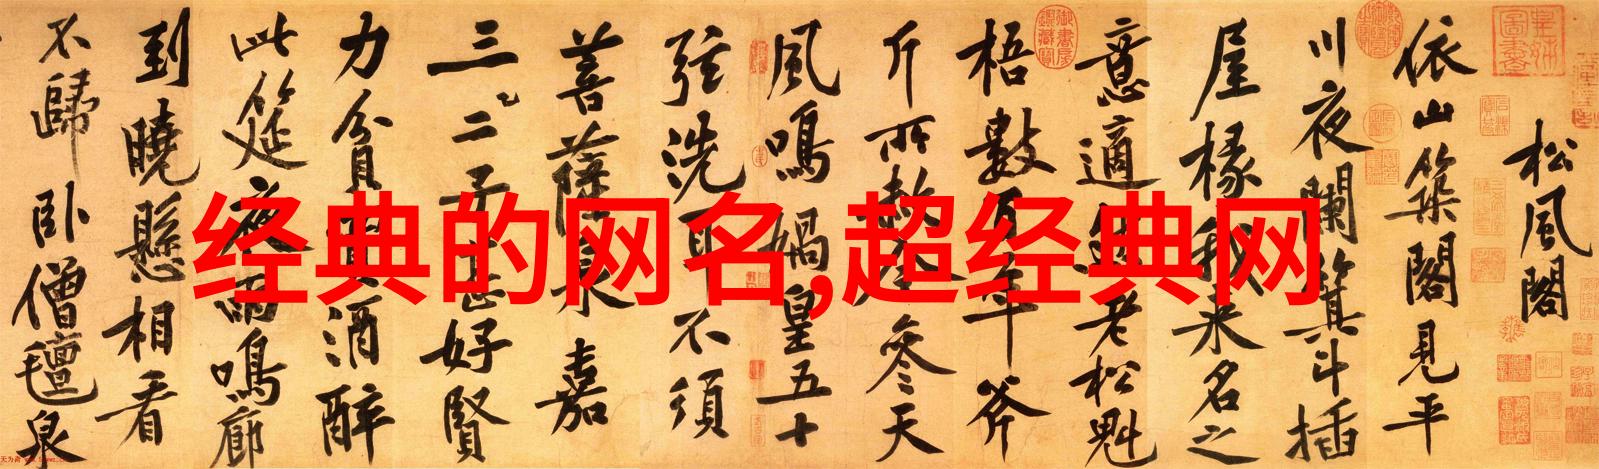 经典的网名,超经典网
松風閣
依山築閣見平
川夜闌箕斗插
屋椽我来名之
意適然老松魁
梧數百年斧
斤所赦今參天
風鳴媧皇五十
弦洗耳不須
菩薩泉嘉
三二子甚好賢
力貧買酒醉
此筵夜雨鳴廊
到曉懸相看
不歸臥僧氊泉